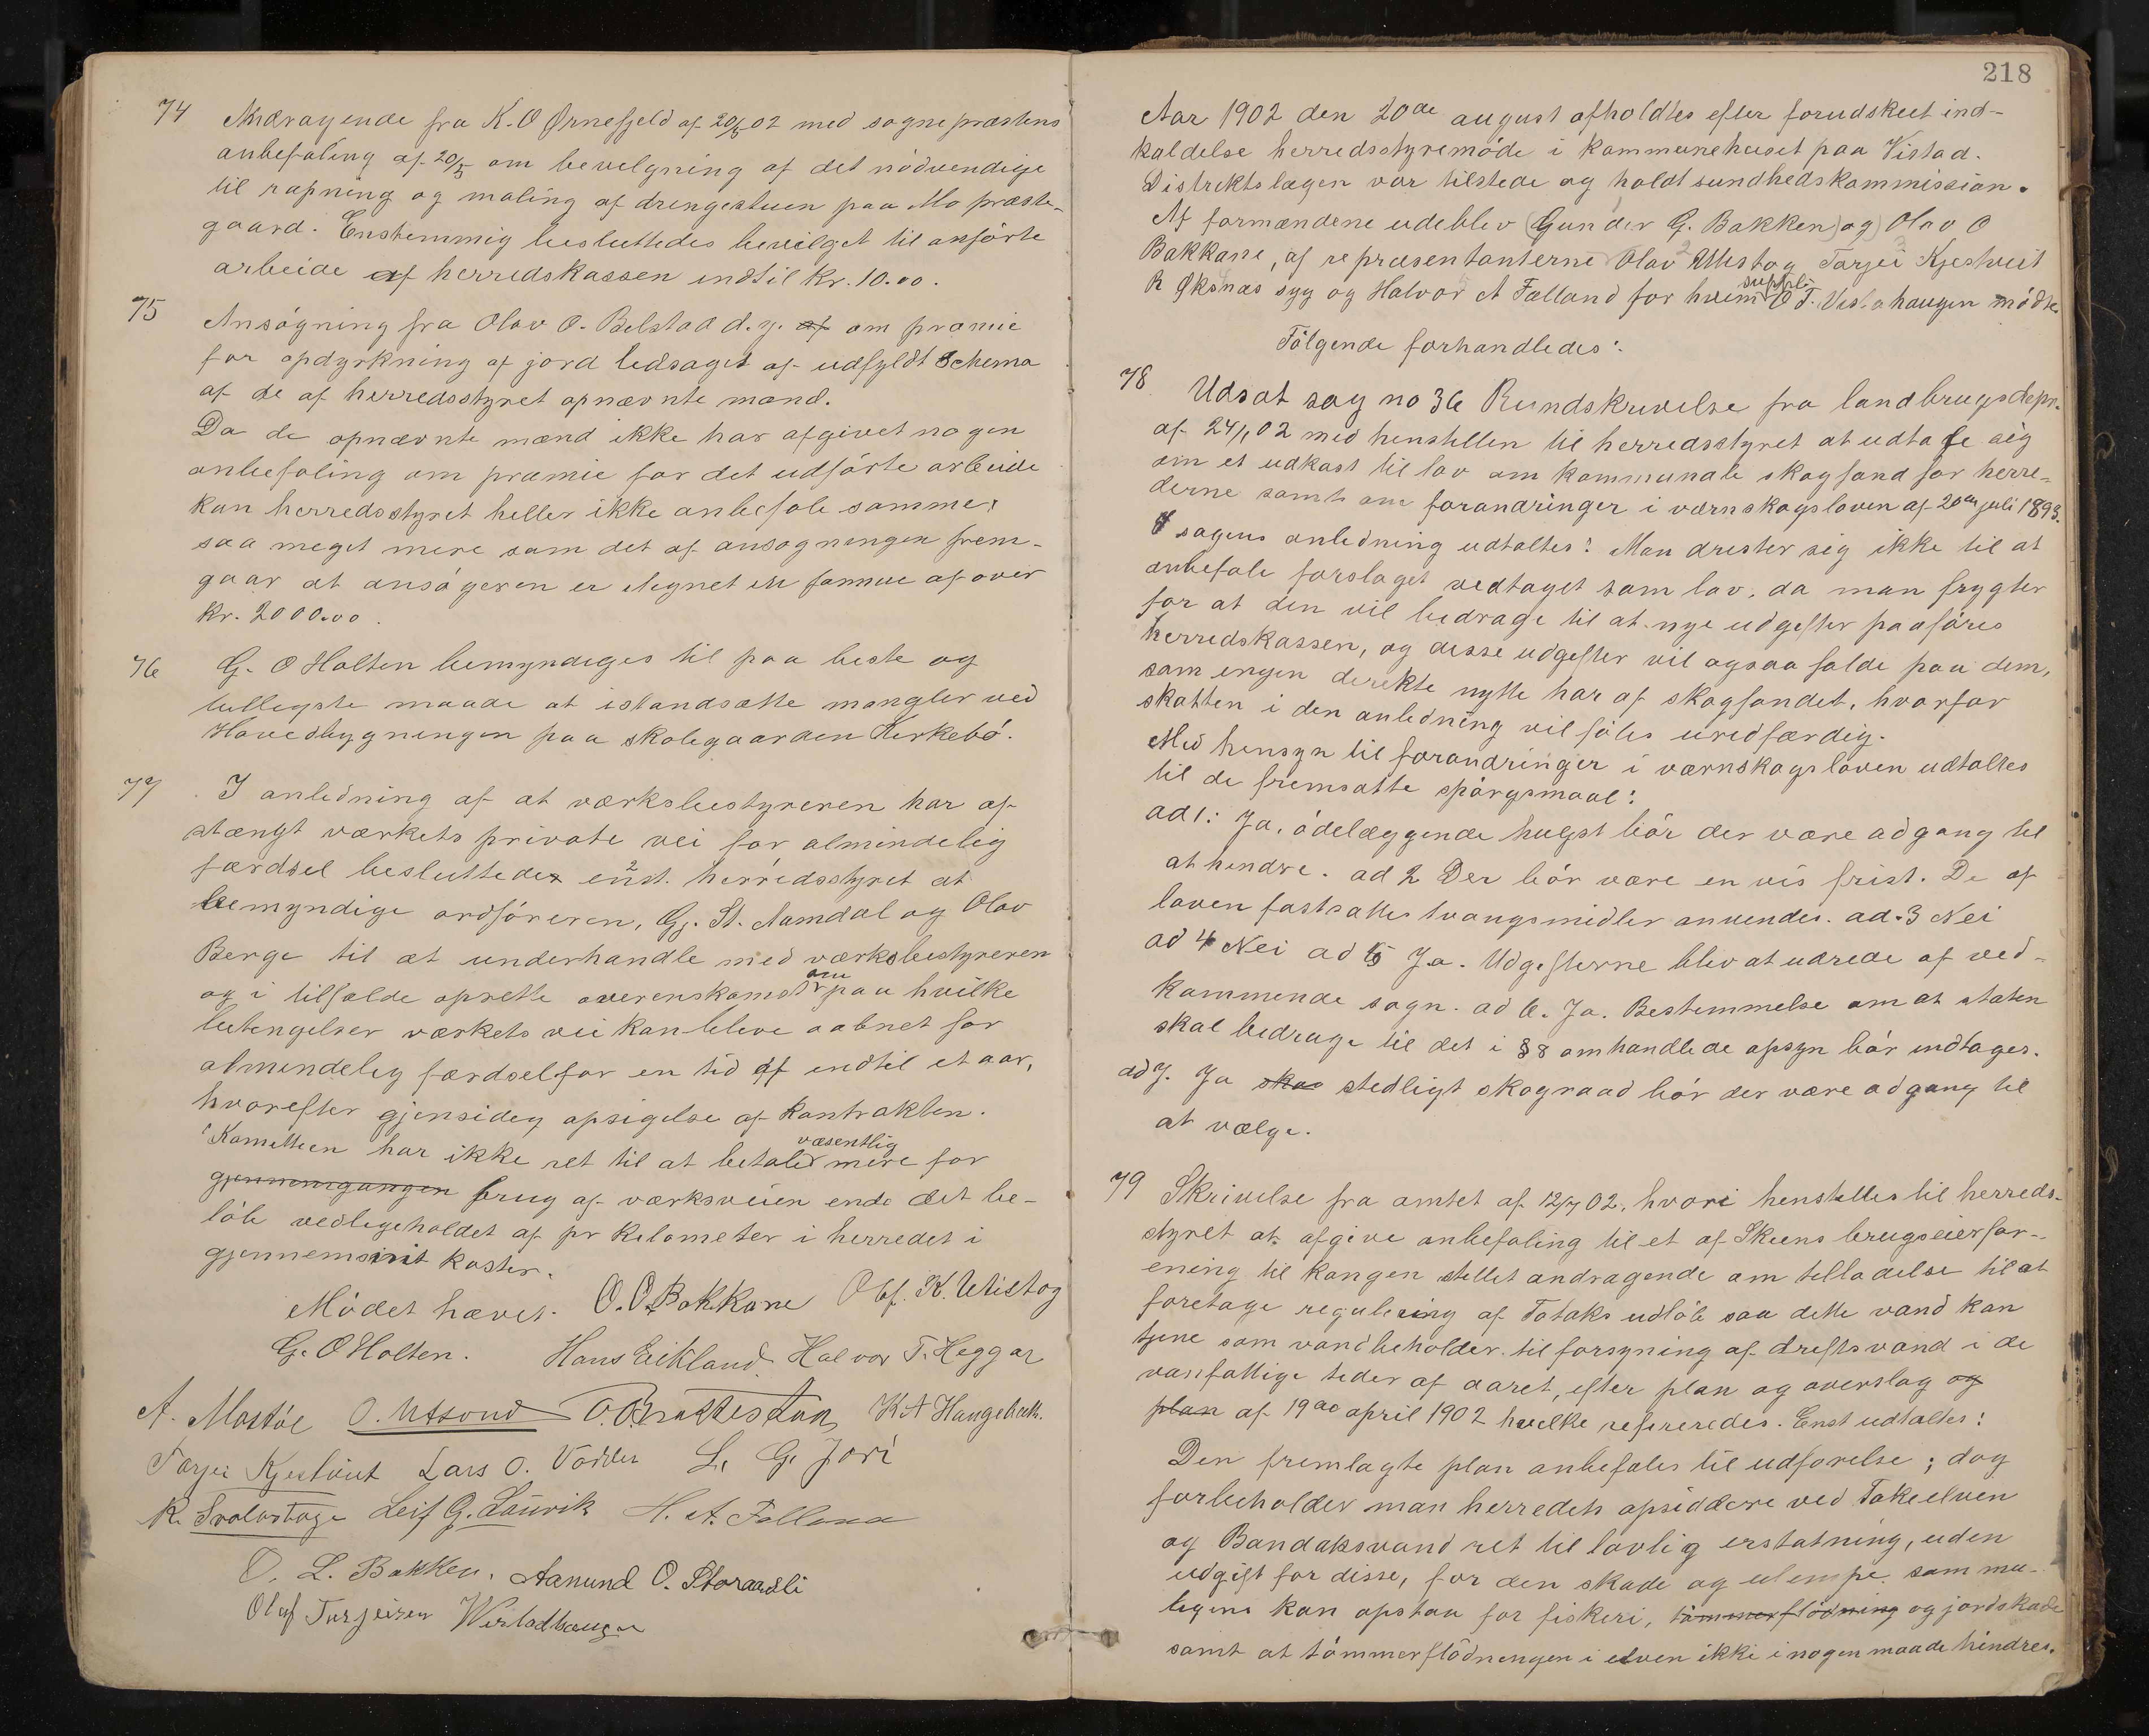 74 Andragende fra K. O Ørnefjeld af 20/5 02 med sogneprestens
anbefaling af 20/5 om bevelgning af det nödvendige
til rapning og maling af drengestuen paa Mo præste-
gaard. Enstemmig besluttedes bevilget til anförte
arbeide af herredskassen indtil kr. 10.00.
75 Ansögning fra Olav O. Belstad d. y. af om præmie
for opdyrkning af jord ledsaget af udfyldt Schema
af de af herredsstyret opnævnte mænd.
Da de opnævnte mænd ikke har afgivet nogen
anbefaling om præmie for det udförte arbeide
kan herredsstyret heller ikke anbefale samme,
saa meget mere som det af ansøgningen frem-
gaar at ansögeren er ilegnet en formue af over
Kr. 2000.00.
76 G. O Holten bemyndiges til paa beste og
billegste maade at istandsætte mangler ved
Hovedbygningen paa skolegaarden Kirkebö.
77 I anledning af at værksbestyreren har af
stængt værkets private vei for almindelig
færdsel besluttedes enst. herredsstyret at
bemyndige ordföreren, Gj. St. Aamdal og Olav
Berge til at underhandle med værksbestyreren
og i tilfælde oprette overenskomst om paa hvilke
betengelser værkets vei kan blive aabnet for
almendelig færdsel for en tid af indtil et aar,
hvorefter gjensideg opsigelse af kontrakten.
Komitteen har ikke ret til at betale væsentlig mere for
gjennemgangen brug af værksveien ende det be-
löb vedligeholdet af pr kilometer i herredet i
gjennemsnit koster.
Mödet hævet. O. O. Bakkane Olf. K. Utistog
G. O Holten. Hans Eikland Halvor T. Heggar
A. Mostöe O. Utsond O. Brattestaa K A Haugebak.
Tarjei Kjestveit Lars O. Vadder L. G. Jori
K. Svalastoge Leif G. Laurik H. A. Folland
O. L. Bakken. Aanund O. Storaadli
Olaf Torjeisen Wistadhaugen
218
Aar 1902 den 20de august afholdtes efter forudskeet ind-
kaldelse herredsstyremöde i kommunehuset paa Vistad.
Distriktslægen var tilstede og holdt sundhedskommission.
Af formændene udeblev (Gunder G. Bakken) og) Olav O
Bakkane, af repræsentanterne Olav Utistog Tarjei Kjestveit
R Øksnæs syg og Halvor A Folland for hvem suppli O T. Vistahaugen mödte
Fölgende forhandledes:
78 Udsat sag no 36 Rundskrivelse fra landbrugsdepr.
af 24/1 02 med henstillen til herredsstyret at udtale sig
om et udkast til lov om kommunale skogfond for herre-
derne samt om forandringer i værnskogsloven af 20de juli 1893.
I sagens anledning udtaltes: Man drister sig ikke til at
anbefale forslaget vedtaget som lov, da man frygter
for at den vil bedrage til at nye udgefter paaföres
herredskassen, og disse udgefter vil ogsaa falde paa dem,
som engen derekte nytte har af skogfondet, hvorfor
skatten i den anledning vil föles uredfærdig.
Med hensyn til forandringer i værnskogsloven udtaltes
til de fremsatte spörgsmaal:
ad 1: Ja, ödelæggende hugst bör der være adgang til
at hendre. ad 2 Der bör være en vis frist. De af
loven fastsattes tvangsmidler anvendes. ad. 3 Nei
ad 4 Nei ad 5 Ja. Udgefterne blev at udrede af ved-
kommende sogn. ad 6. Ja. Bestemmelse om at staten
skal bedrage til det i § 8 omhandlede opsyn bör indtages.
ad 7. Ja skog stedligt skograad bör der være adgang til
at vælge.
79 Skrivelse fra amtet af 12/7 02, hvori henstelles til herreds-
styret at afgive anbefaling til et af Skiens brugseierfor-
ening til kongen stellet andragende om telladelse til at
foretage regulering af Totaks udlöb saa dette vand kan
tjene som vandbeholder til forsyning af driftsvand i de
vanfattige teder af aaret, efter plan og overslag og
plan af 19de april 1902 hvelke refereredes. Enst udtaltes:
Den fremlagte plan anbefales til udförelse; dog
forbeholder man herredets opsiddere ved Tokeelven
og Bandaksvand ret til lovlig erstatning, uden
udgift for disse, for den skade og ulempe som mu-
ligens kan opstaa for fiskeri, tömmerflödning og jordskade
samt at tömmerflödningen i elven ikke i nogen maade hindres.